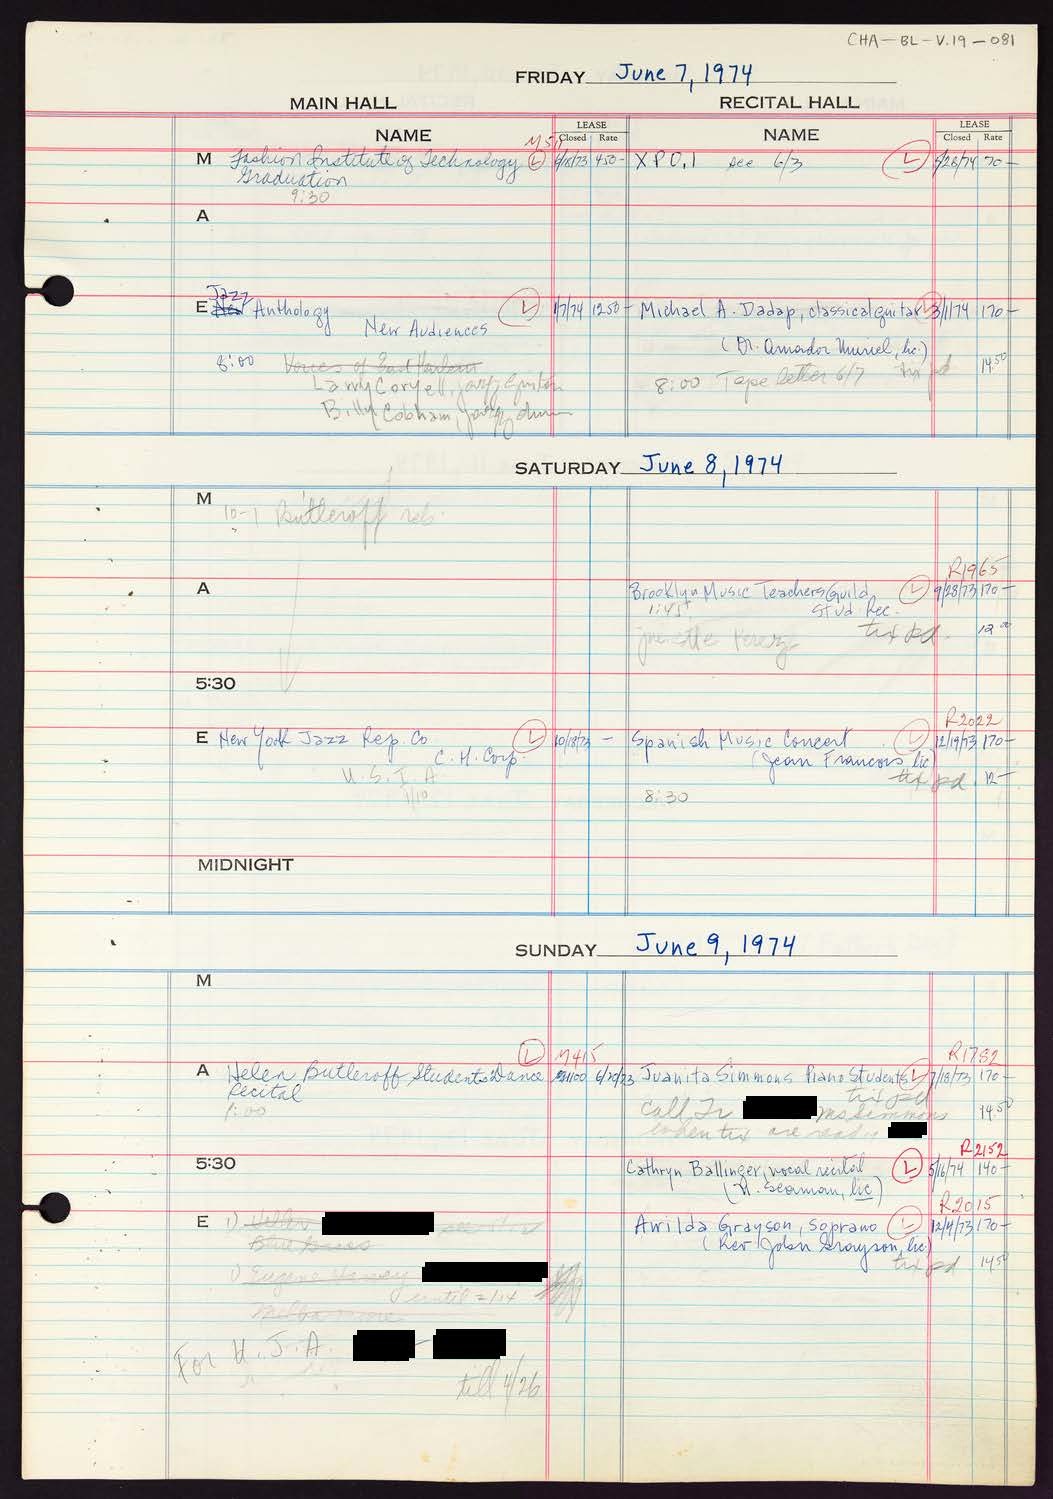 CHA-BL-V.19-081
FRIDAY June 7, 1974
MAIN HALL RECITAL HALL
NAME LEASE Closed Rate NAME LEASE Closed Rate
M Fashion Institute of Technology L 6/18/73 450- XPO,1 see 6/3 L 5/28/74 70-
Graduation
9:30
A
Jazz
E New Anthology L 1/7/74 1250- Michael A. Dadap, classical guitar L 3/1/74 170-
New Audiences
(Dr. Amador Muriel, lic.)
8:00 Voices of East Harlem tix pd 14.50
Larry Coryell, jazz guitar 8:00 Tape letter 6/7
Billy Cobham, jazz drum
SATURDAY June 8, 1974
M
10-1 Butleroff reh.
R1965
A Brooklyn Music Teachers Guild L 9/28/73 170-
1:45 Stud. Rec.
tix pd. 12.00
Perez
5:30
R2022
E New York Jazz Rep. Co L 10/18/73 - Spanish Music Concert L 12/19/73 170-
C. H. Corp. (Jean Francois, lic)
U.S.I.A tix pd 12-
1/10 8:30
MIDNIGHT
SUNDAY June 9, 1974
M
L M415 R1782
A Helen Butleroff Students Dance 1100 6/20/73 Juanita Simmons Piano Students L 7/18/73 170-
Recital tix pd
1:00 Call Ms Simmons 14.50
when tix are ready
R2152
5:30 Cathryn Ballinger, vocal recital L 5/16/74 140-
(N. Seaman, lic)
R2015
E 1) Anrilda Grayson, soprano L 12/4/73 170-
Blue (Rev John Grayson, lic.)
1) Eugene tix pd 14.50
until 2/14
Melba Moore
For U.J.A. -
till 4/26